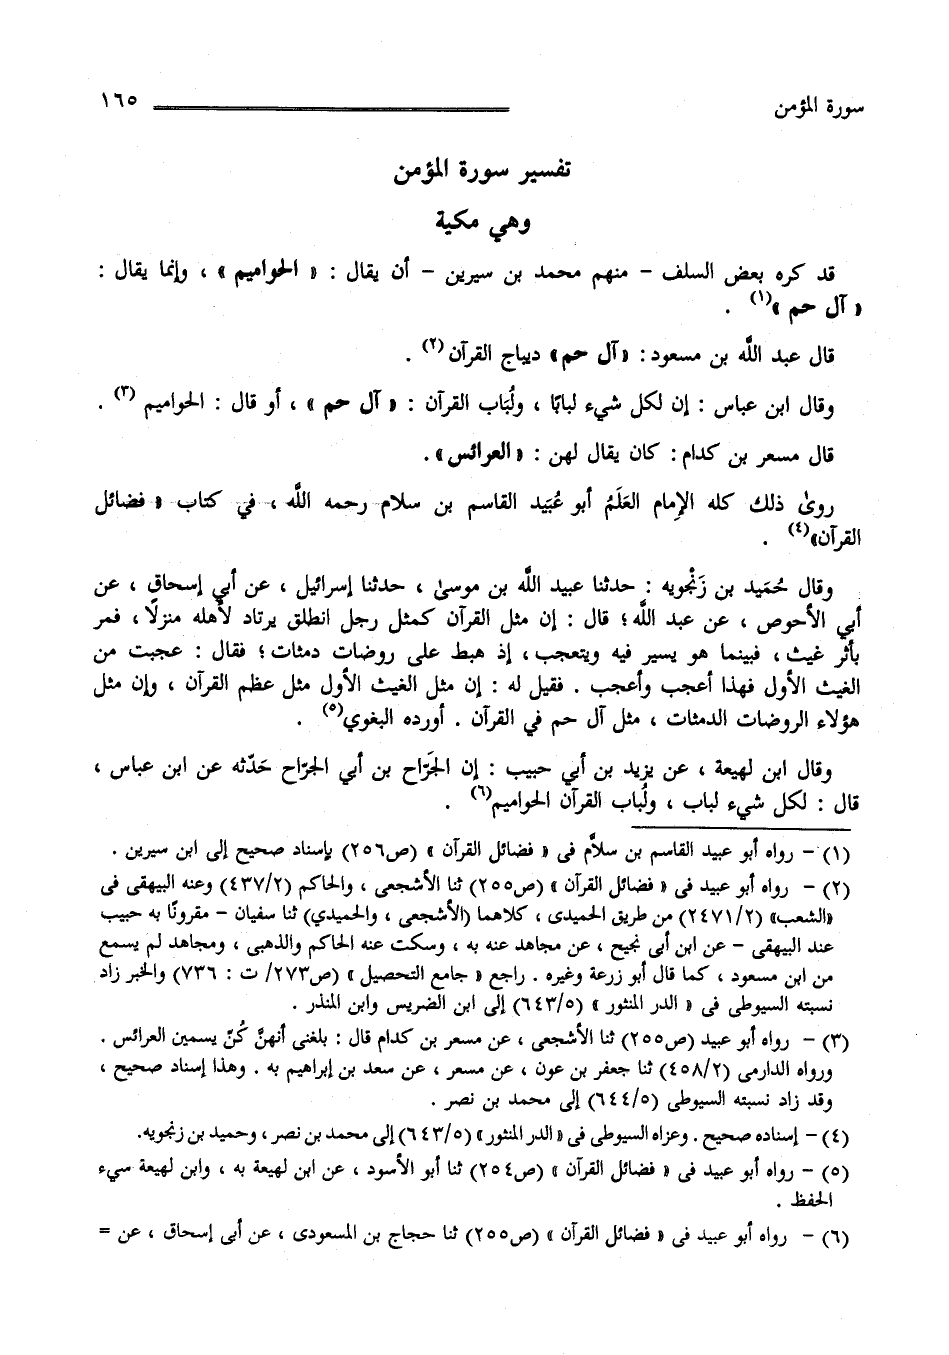 سورة المؤمن ١٦٥
تفسير سورة المؤمن
وهي مكية
قد كره بعض السلف - منهم محمد بن سيرين - أن يقال : « الحواميم » ، وإنما يقال :
« آل حم »(١) .
قال عبد اللَّه بن مسعود: «آل حم» ديباج القرآن(٢) .
وقال ابن عباس : إن لكل شيء لبابًا ، ولُبَاب القرآن : « آل حم » ، أو قال : الحواميم (٣) .
قال مسعر بن كدام: كان يقال لهن : « العرائس».
روىٰ ذلك كله الإمام العَلَمُ أبو عُبَيد القاسم بن سلام رحمه اللَّه ، في كتاب « فضائل
القرآن»(٤) .
وقال حُمَيد بن زَنْجويه : حدثنا عبيد اللَّه بن موسىٰ ، حدثنا إسرائيل ، عن أبي إسحاق ، عن
أبي الأحوص ، عن عبد اللَّه؛ قال : إن مثل القرآن كمثل رجل انطلق يرتاد لأهله منزلًا ، فمر
بأثر غيث ، فبينما هو يسير فيه ويتعجب ، إذ هبط على روضات دمثات ؛ فقال : عجبت من
الغيث الأول فهذا أعجب وأعجب . فقيل له : إن مثل الغيث الأول مثل عظم القرآن ، وإن مثل
هؤلاء الروضات الدمثات ، مثل آل حم في القرآن . أورده البغوي(٥) .
وقال ابن لهيعة ، عن يزيد بن أبي حبيب : إن الجَرَّاح بن أبي الجرّاح حَدّثه عن ابن عباس ،
قال : لكل شيء لباب ، ولُباب القرآن الحواميم(٦) .
(١) - رواه أبو عبيد القاسم بن سلاَّم فى « فضائل القرآن » (ص٢٥٦) بإسناد صحيح إلى ابن سيرين .
(٢) - رواه أبو عبيد فى « فضائل القرآن » (ص٢٥٥) ثنا الأشجعى ، والحاكم (٤٣٧/٢) وعنه البيهقى فى
«الشعب» (٢٤٧١/٢) من طريق الحميدى ، كلاهما (الأشجعى ، والحميدي) ثنا سفيان - مقرونًا به حبيب
عند البيهقى - عن ابن أبى نجيح ، عن مجاهد عنه به ، وسكت عنه الحاكم والذهبى ، ومجاهد لم يسمع
من ابن مسعود ، كما قال أبو زرعة وغيره . راجع « جامع التحصيل » (ص٢٧٣/ ت : ٧٣٦) والخبر زاد
نسبته السيوطى فى « الدر المنثور » (٦٤٣/٥) إلى ابن الضريس وابن المنذر .
(٣) - رواه أبو عبيد (ص٢٥٥) ثنا الأشجعى ، عن مسعر بن كدام قال : بلغنى أنهنَّ كُنّ يسمين العرائس .
ورواه الدارمى (٤٥٨/٢) ثنا جعفر بن عون ، عن مسعر ، عن سعد بن إبراهيم به . وهذا إسناد صحيح ،
وقد زاد نسبته السيوطى (٦٤٤/٥) إلى محمد بن نصر .
(٤) - إسناده صحيح . وعزاه السيوطى فى « الدر المنثور » (٦٤٣/٥) إلى محمد بن نصر ، وحميد بن زنجويه.
(٥) - رواه أبو عبيد فى « فضائل القرآن » (ص٢٥٤) ثنا أبو الأسود ، عن ابن لهيعة به ، وابن لهيعة سيء
الحفظ .
(٦) - رواه أبو عبيد فى « فضائل القرآن » (ص٢٥٥) ثنا حجاج بن المسعودى ، عن أبى إسحاق ، عن =